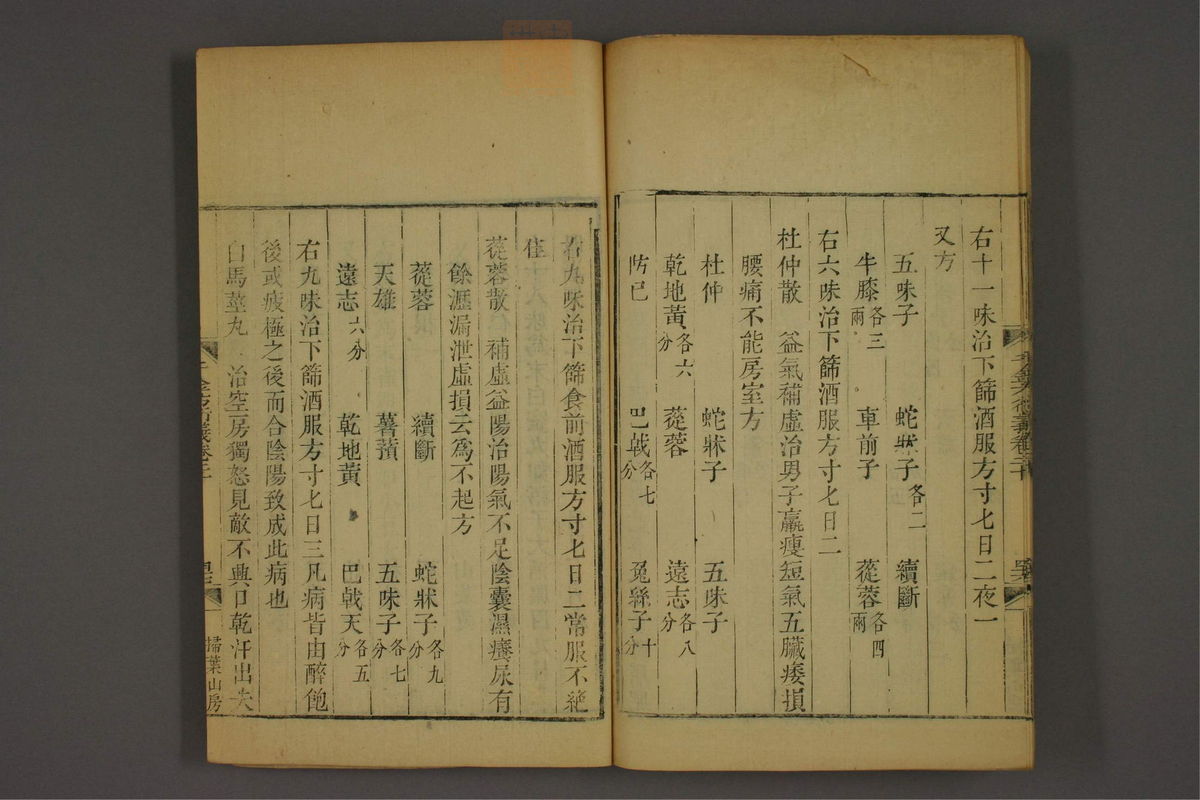 右十一味治下篩酒服方寸匕日二夜一
又方
五味子 蛇牀子各二 續斷
牛膝各三兩 車前子 蓯蓉各四兩
右六味治下篩酒服方寸匕日二
杜仲散 益氣補虛治男子羸瘦短氣五臟痿損
腰痛不能房室方
杜仲 蛇牀子 五味子
乾地黃各六分 蓯蓉 遠志各八分
防己 巴戟各七分 兔絲子十分
右九味治下篩食前酒服方寸匕日二常服不絕
佳
蓯蓉散 補虛益陽治陽氣不足陰囊濕癢尿有
餘瀝漏泄虛損云為不起方
蓯蓉 續斷 蛇牀子各九分
天雄 薯蕷 五味子各七分
遠志六分 乾地黃 巴戟天各五分
右九味治下篩酒服方寸匕日三凡病皆由醉飽
後或疲極之後而合陰陽致成此病也
白馬莖丸 治空房獨怒見敵不興口乾汗出失
掃葉山房